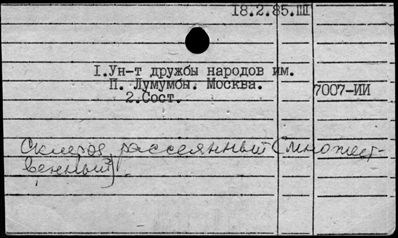 18.2.85.III
I.Ун-т дружбы народов им.
П. Лумумбы. Москва.
7007-ИИ
2.Сост.
Склероз рассеянный (множест-
венный).